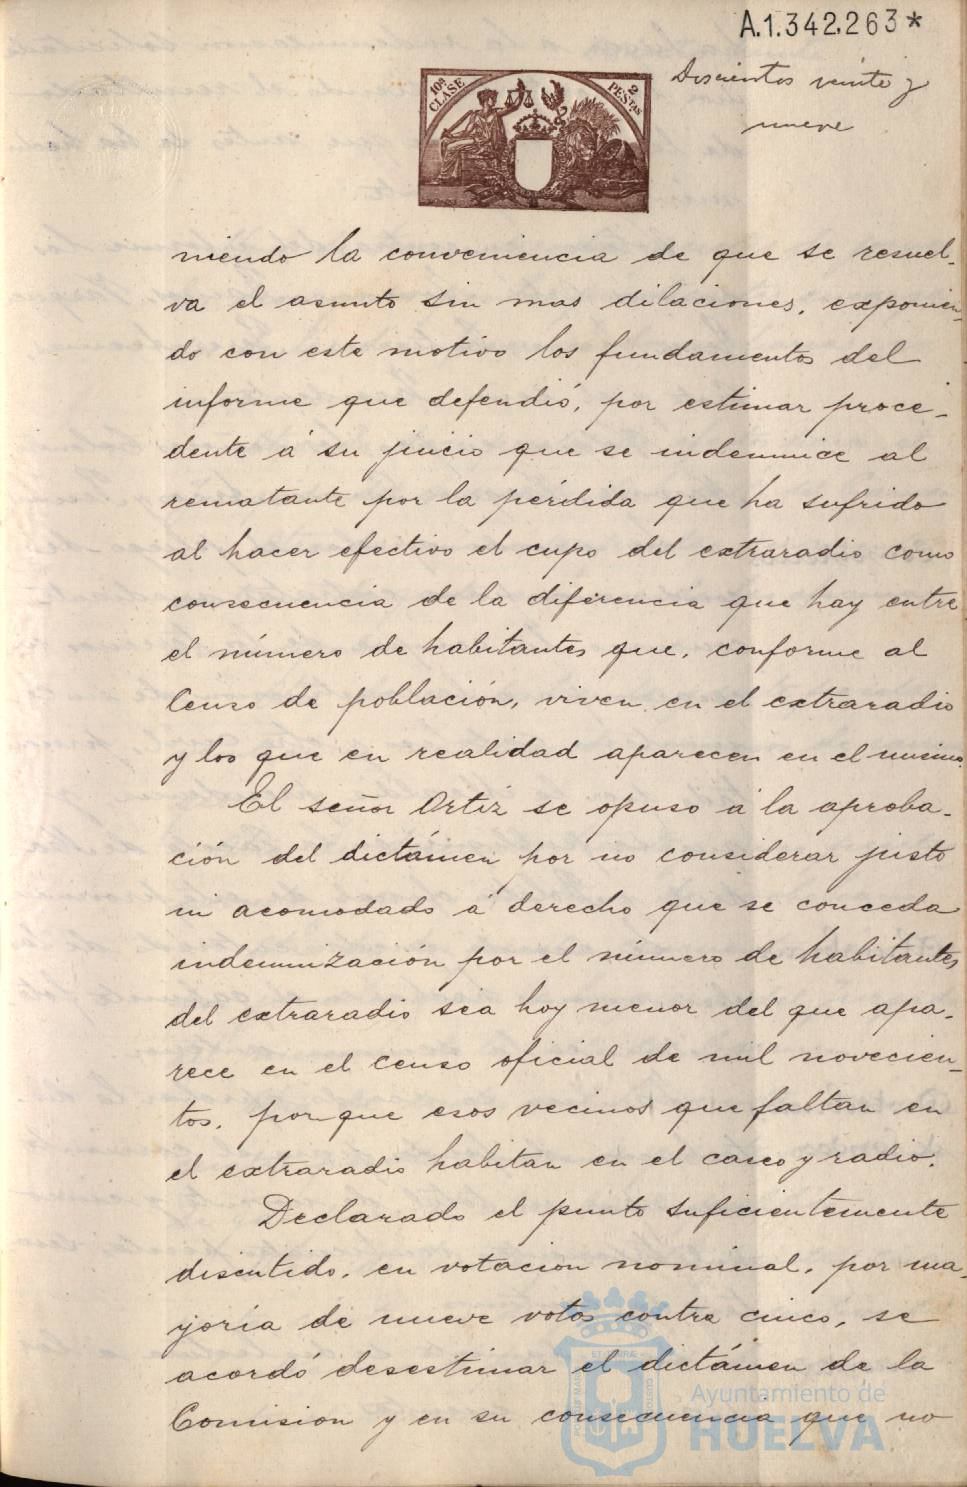 A.1.342.263*
Doscientos veinte y
nueve
10ª CLASE
2 PESTAS
niendo la conveniencia de que se resuel-
va el asunto sin mas dilaciones, exponien-
do con este motivo los fundamentos del
informe que defendió, por estimar proce-
dente á su juicio que se indemnice al
rematante por la pérdida que ha sufrido
al hacer efectivo el cupo del extraradio como
consecuencia de la diferencia que hay entre
el número de habitantes que, conforme al
Censo de población, viven en el extraradio
y los que en realidad aparecen en el mismo.
El señor Ortiz se opuso á la aproba-
ción del dictámen por no considerar justo
ni acomodado á derecho que se conceda
indemnización por el número de habitantes
del extraradio sea hoy menor del que apa-
rece en el censo oficial de mil novecien-
tos, porque esos vecinos que faltan en
el extraradio habitan en el casco y radio.
Declarado el punto suficientemente
discutido, en votacion nominal, por ma-
yoría de nueve votos contra cinco, se
acordó desestimar el dictámen de la
Comision y en su consecuencia que no
Ayuntamiento de
HUELVA